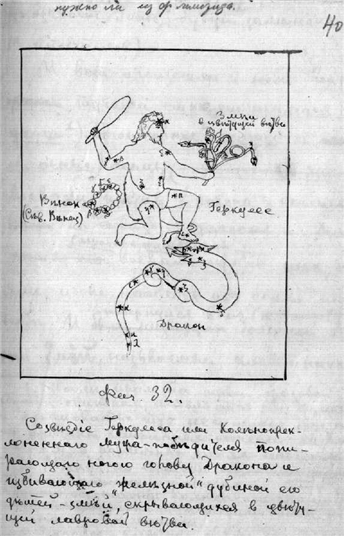 нужно ли из ор
40
Змеи
в цвѣтущей вѣтви
Вѣнок
(Сѣв. Вѣнец)
Геркулес
Дракон
Фиг. 32.
Созвѣздіе Геркулеса или Колѣнопрек-
лоненнаго Мужа-побѣдителя попи-
рающаго ногою голову Дракона и
избивающаго "желѣзной" дубиной его
дѣтей-змѣй, скрывающихся в цвѣту-
щей лавровой вѣтви.